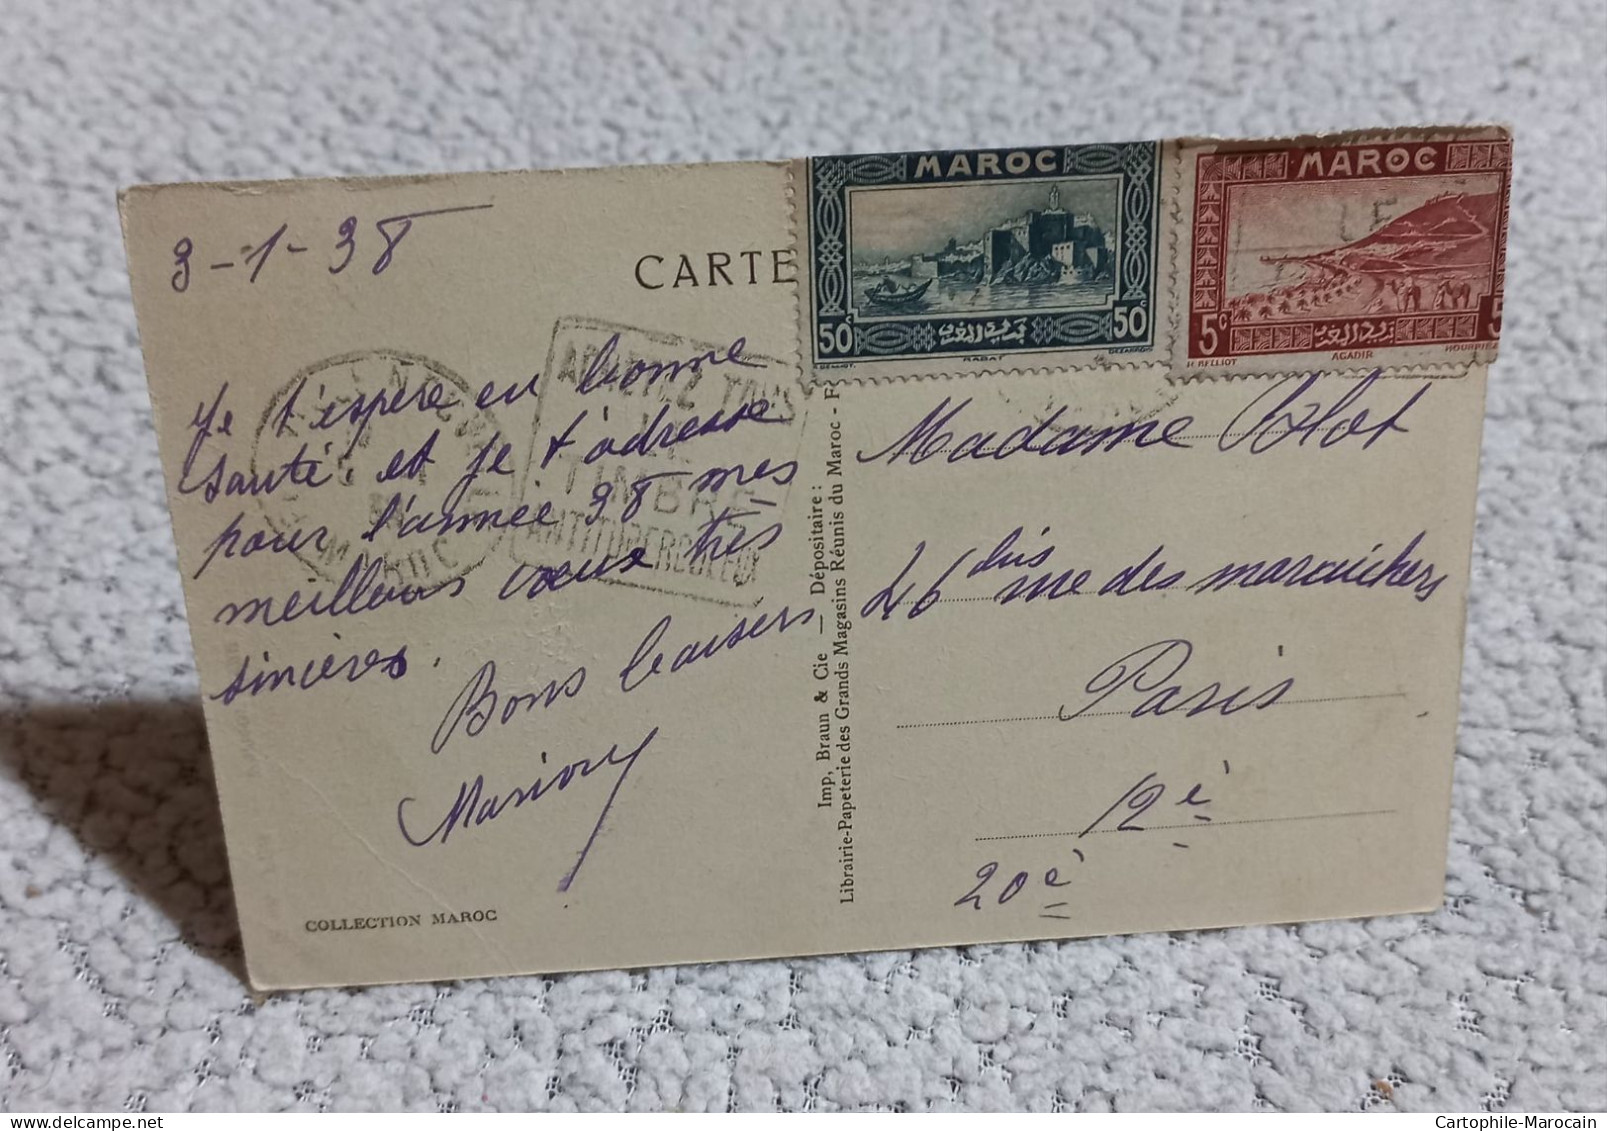 3-1-38
CARTE
Je t'espère en bonne
santé. et je t'adresse
pour l'année 38 mes
meilleurs vœux très
sincères.
Bons baisers
COLLECTION MAROC
ACHETEZ TOUS
LE
TIMBRE
ANTITUBERCULEUX
MAROC
Imp, Braun & Cie — Dépositaire :
Librairie-Papeterie des Grands Magasins Réunis du Maroc - F
MAROC
50c
50c
بريد المغرب
RABAT
MAROC
5c
5
بريد المغرب
H BELLIOT
AGADIR
Madame
46 bis rue des maraichers
Paris
12è
20è
Cartophile-Marocain